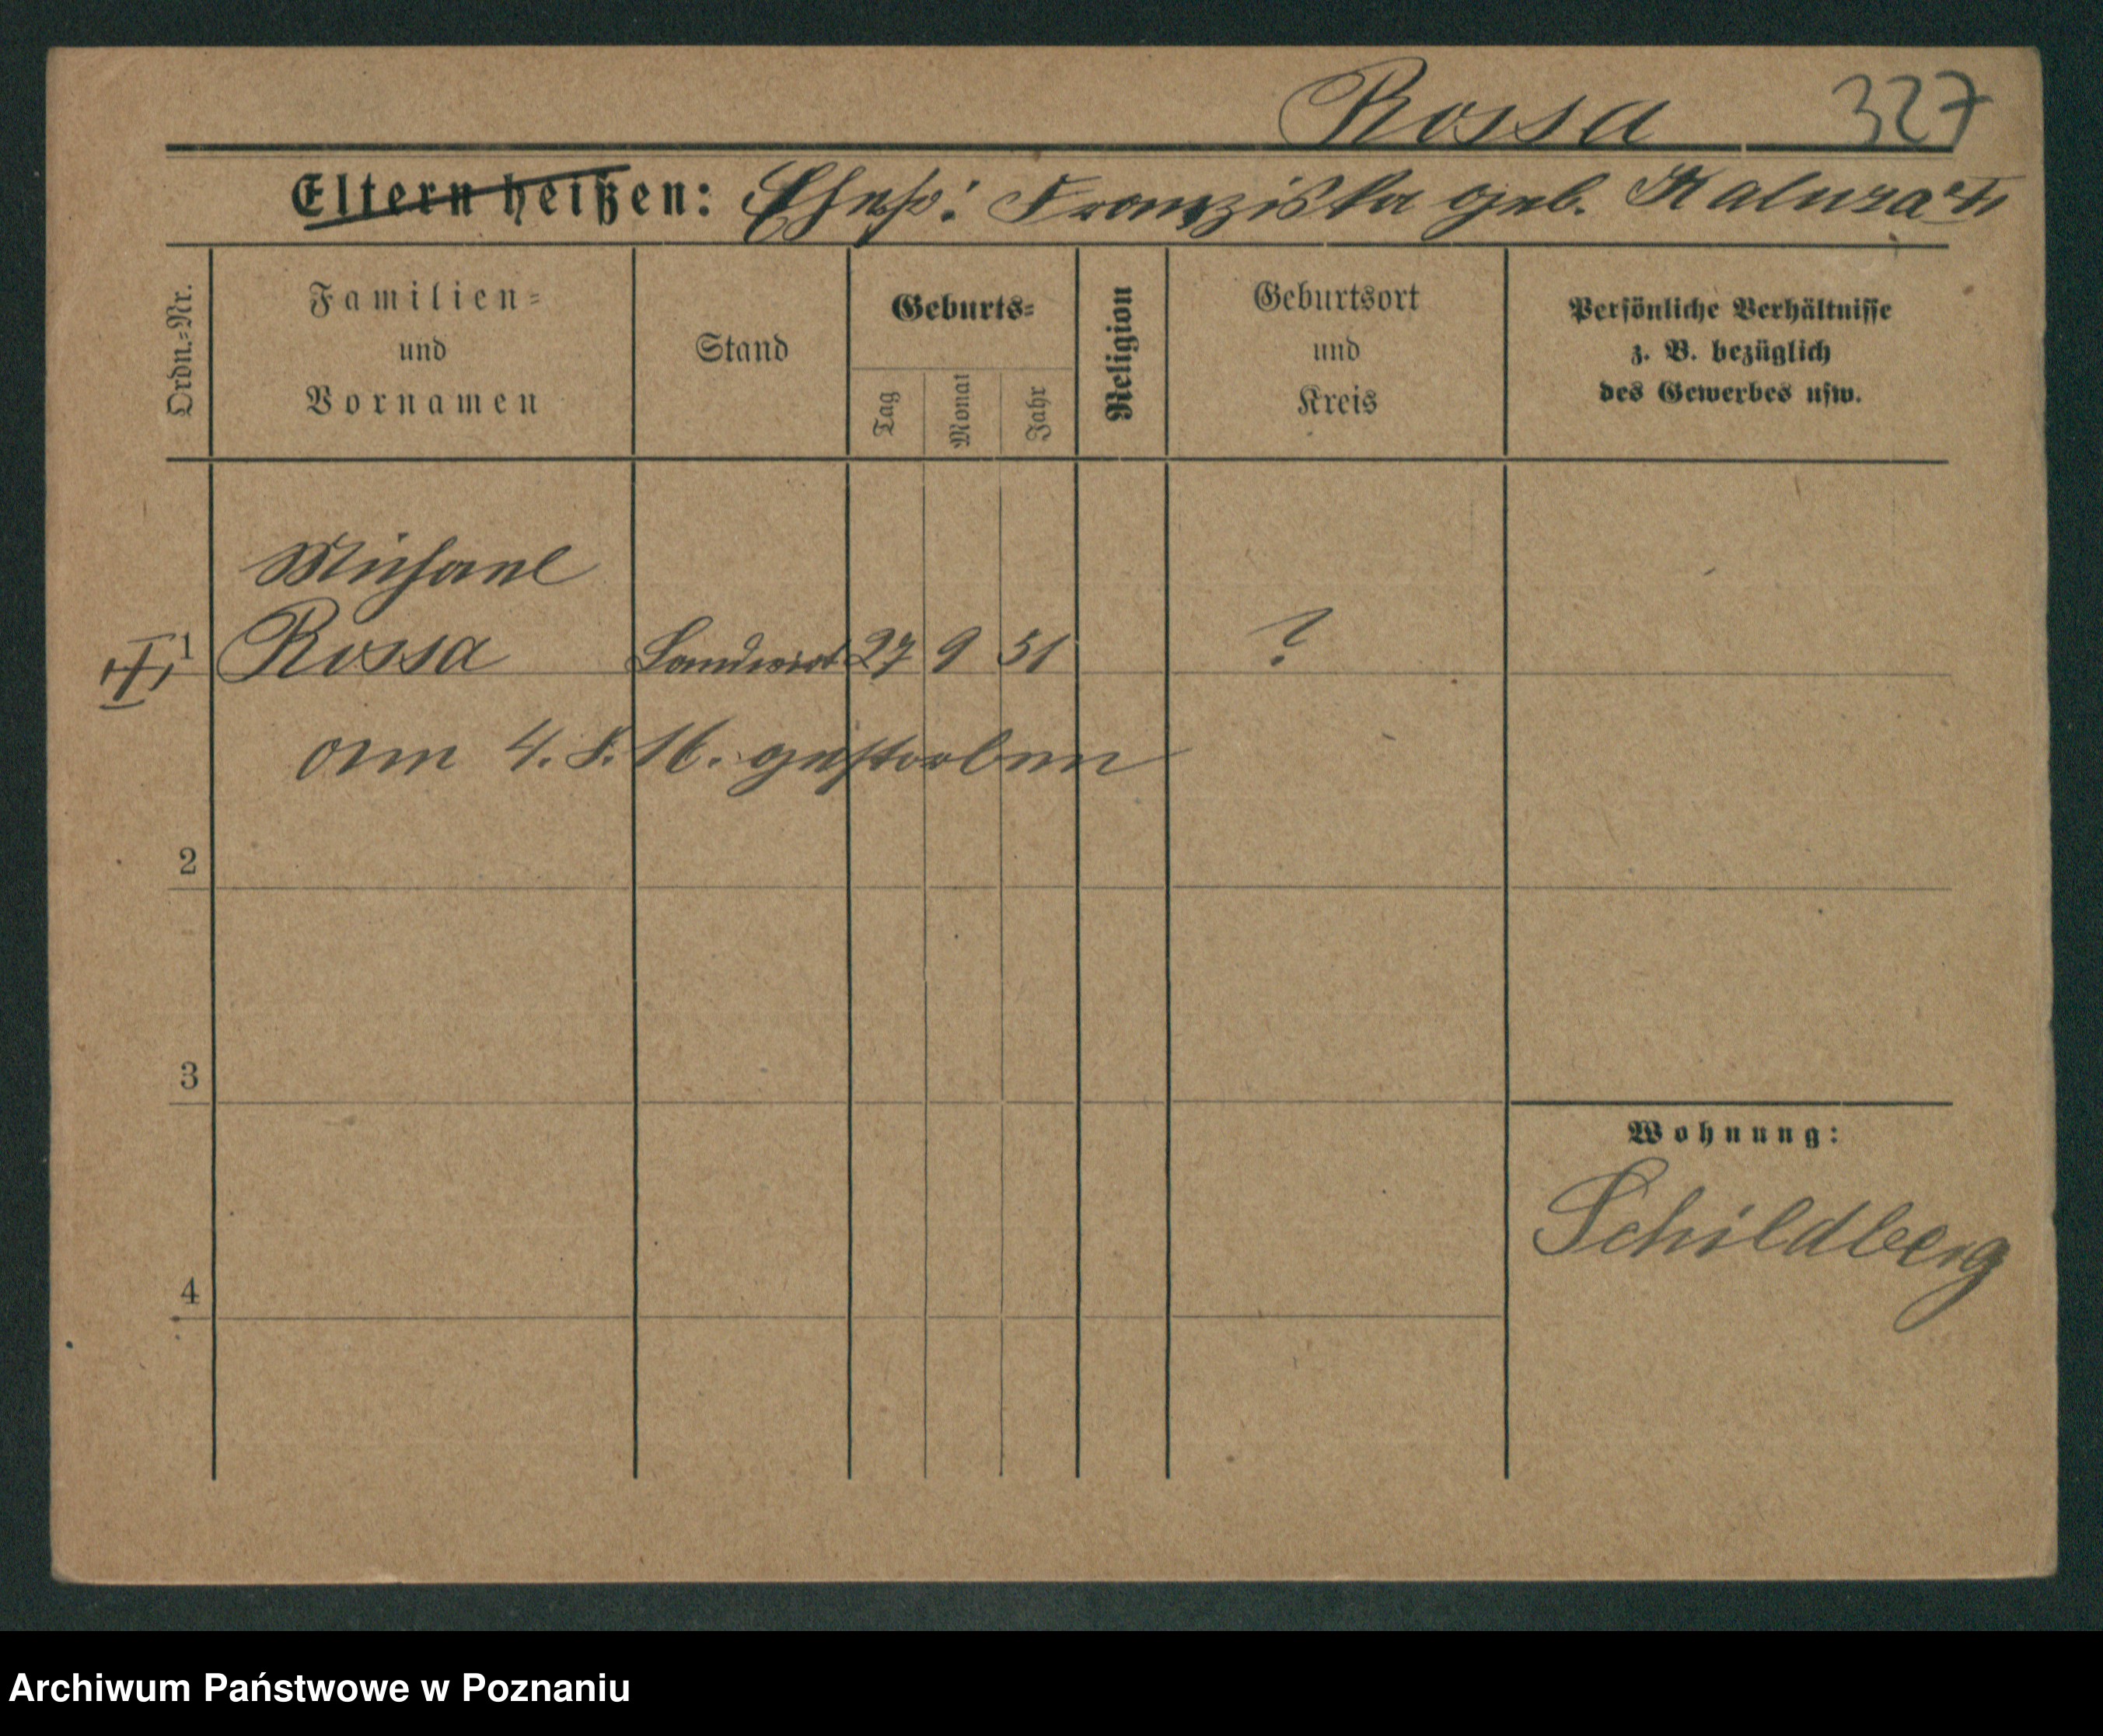 Rossa 327
Eltern heißen: Ehefr: Franziska geb. Kaluza
Ordn.=Nr.
Familien=
und
Vornamen
Stand
Geburts=
Tag
Monat
Jahr
Religion
Geburtsort
und
Kreis
Persönliche Verhältnisse
z. B. bezüglich
des Gewerbes usw.
Michael
1 Rossa Landwirt 27 9 51 ?
am 4. 8. 16. gestorben
2
3
Wohnung:
Schildberg
4
Archiwum Państwowe w Poznaniu